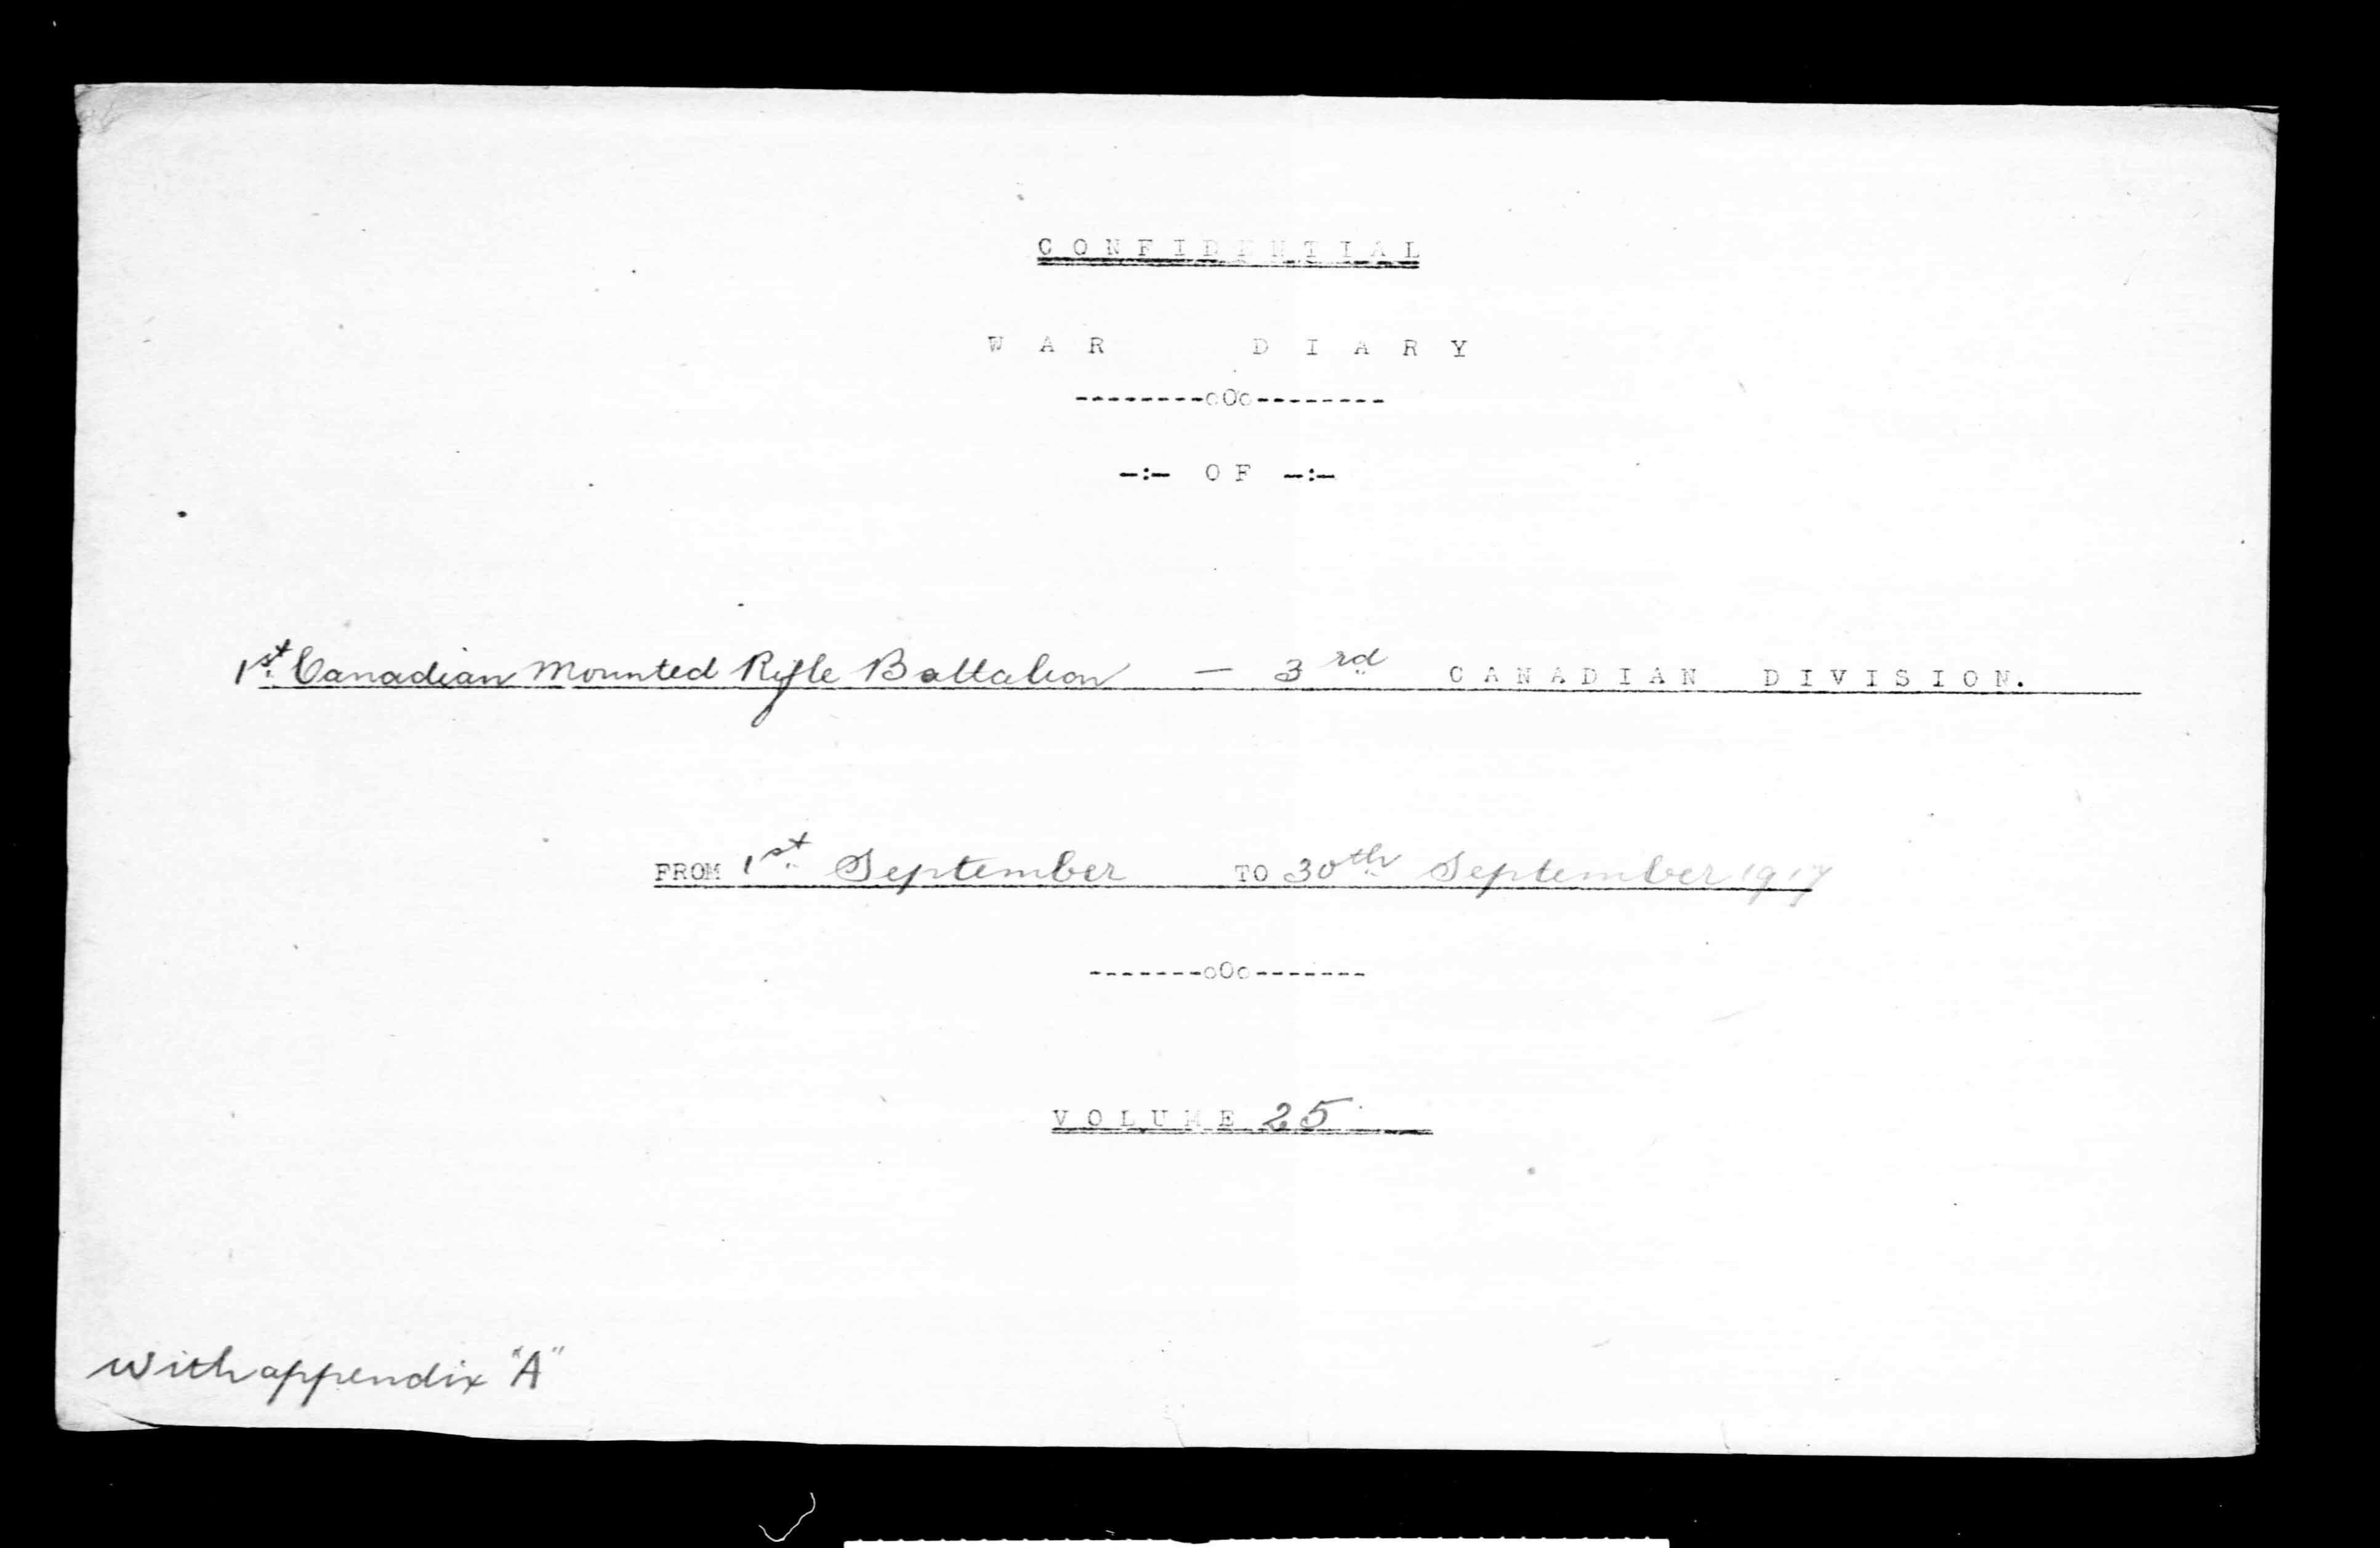 CONFIDENTIAL
WAR DIARY
--------oOo--------
-:- OF -:-
1st Canadian Mounted Rifle Battalion — 3rd CANADIAN DIVISION.
FROM 1st September TO 30th September 1917
-------oOo-------
VOLUME 25
with appendix "A"